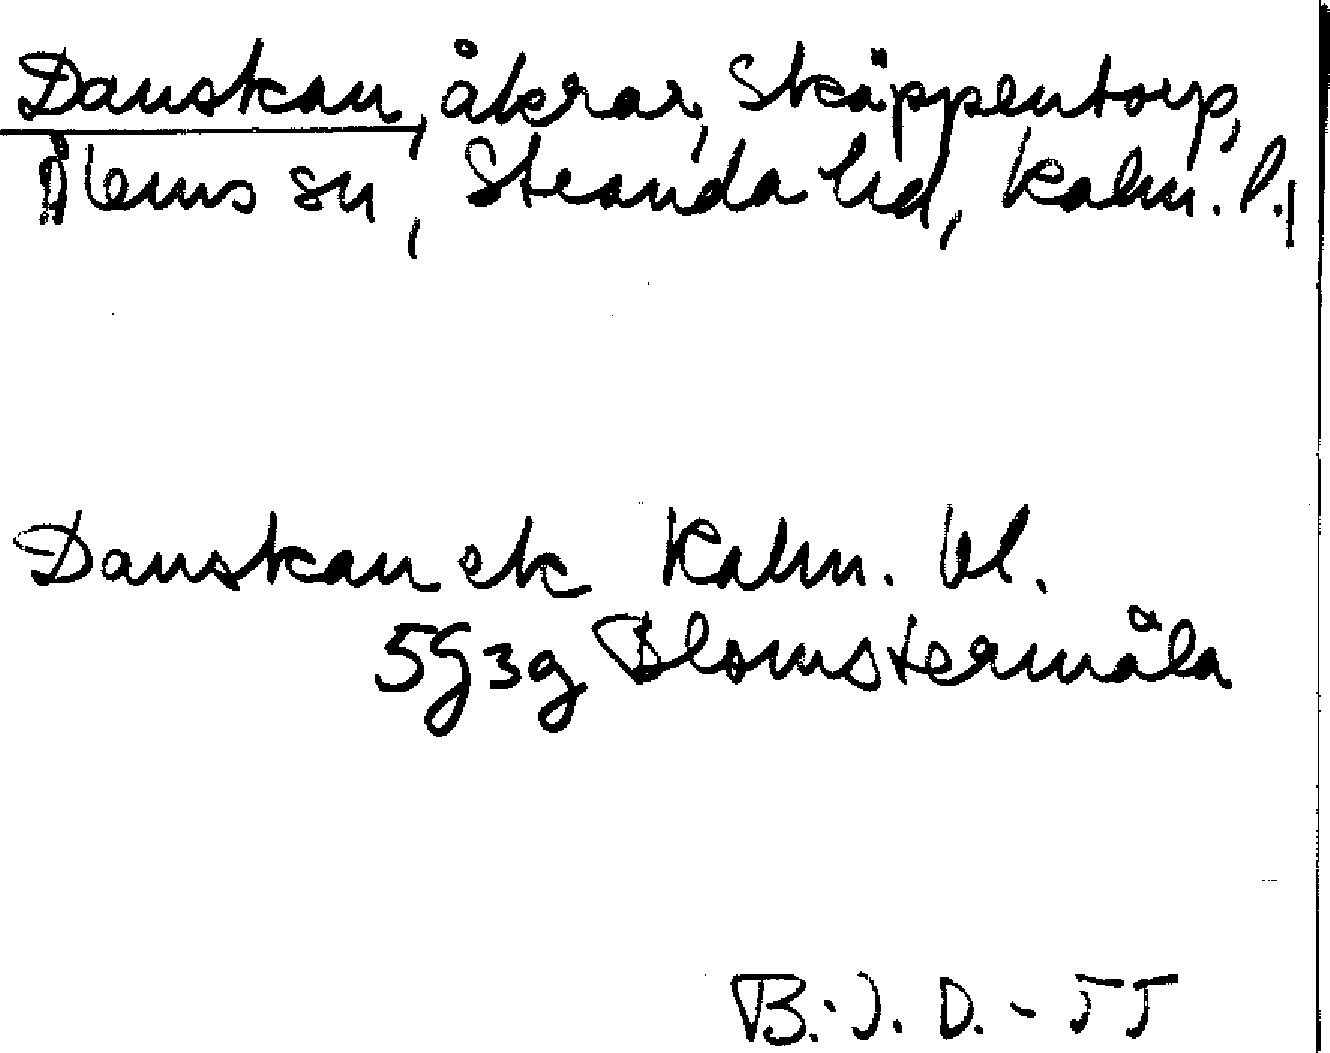 Danskan, åkrar, Skäppentorp,
Ålems sn, Stranda hd, Kalm. l.,
Danskan ek Kalm. bl.
5G3g Blomstermåla
B.-J. D. - 55